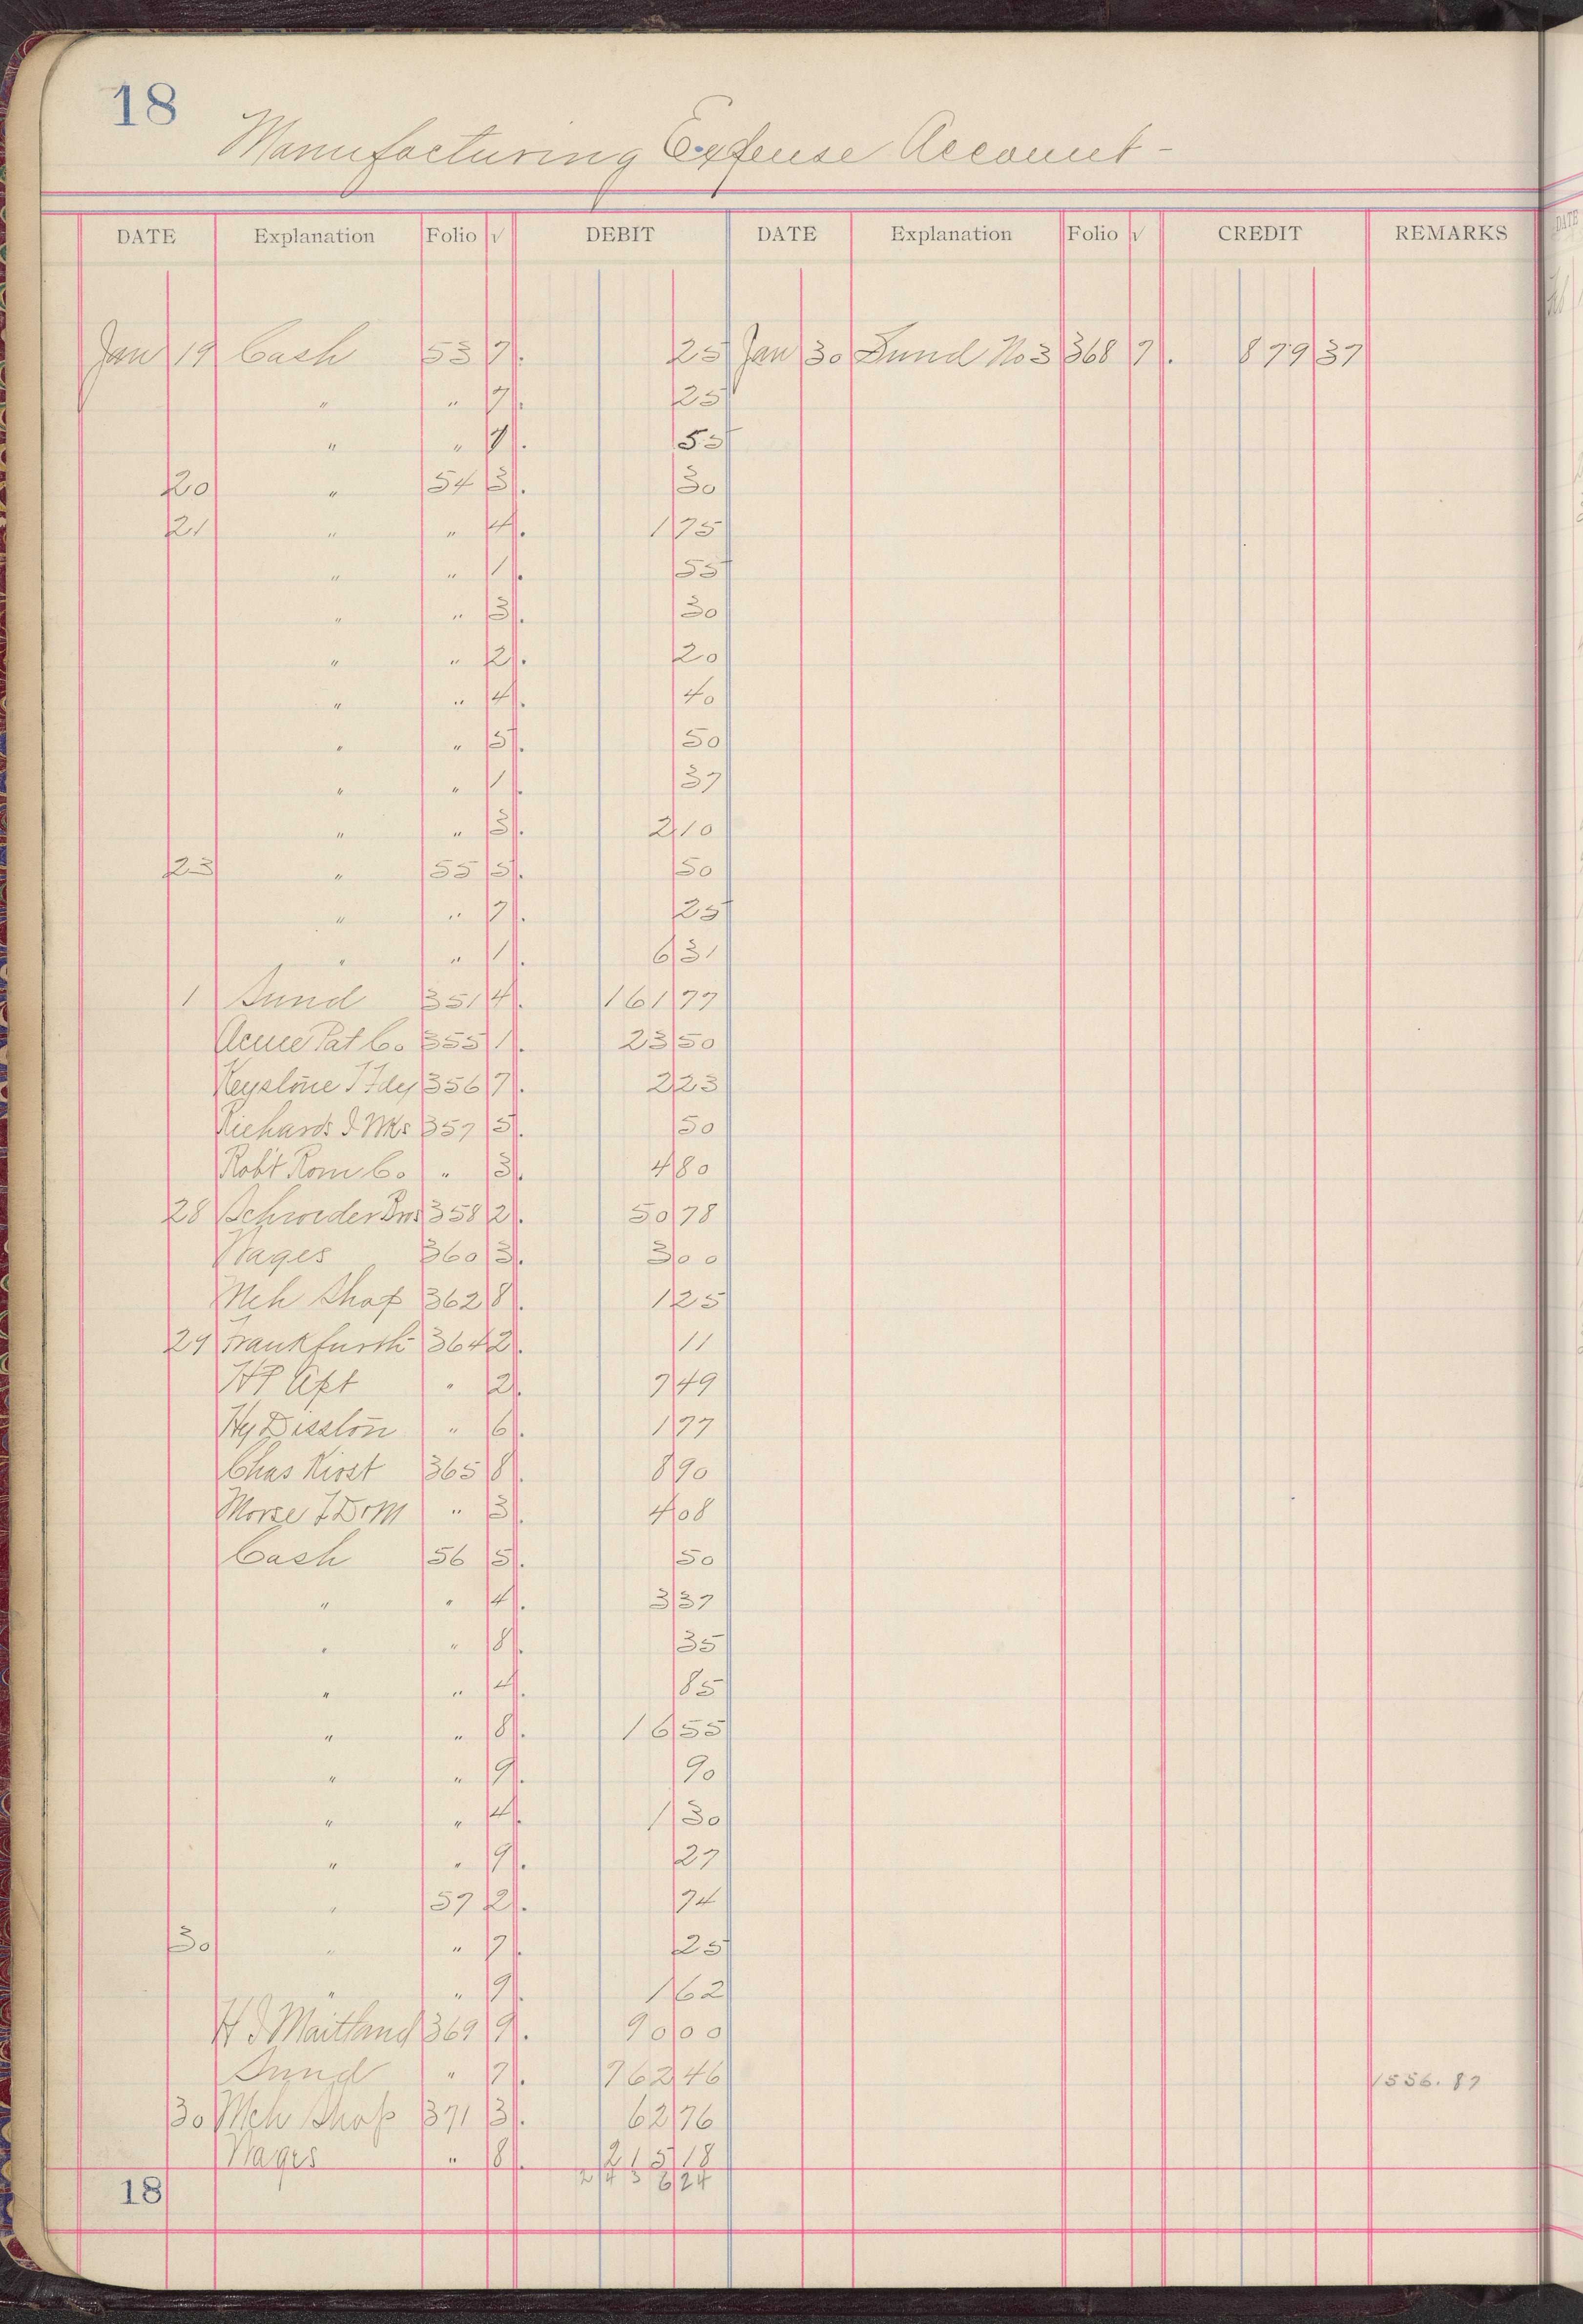 18
Manufacturing Expense Account -
DATE Explanation Folio √ DEBIT DATE Explanation Folio √ CREDIT REMARKS
Jan 19 Cash 53 7. 25 Jan 30 Sund No 3 368 7. 879 37
" " 7. 25
" " 7. 55
20 " 54 3. 30
21 " " 4. 1 75
" " 1. 55
" " 3. 30
" " 2. 20
" " 4. 40
" " 5. 50
" " 1. 37
" " 3. 2 10
23 " 55 5. 50
" " 7. 25
" " 1. 6 31
1 Sund 351 4. 161 77
Acme Pat Co 355 1. 23 50
Keystone 356 7. 2 23
Richards 357 5. 50
Robt Rom Co " 3. 4 80
28 Schroeder Bros 358 2. 50 78
Wages 360 3. 3 00
Mch Shop 362 8. 1 25
29 Frankfurth 364 2. 11
HP Apt " 2. 7 49
Hy Disston " 6. 1 77
Chas Kiost 365 8. 8 90
Morse TD&M " 3. 4 08
Cash 56 5. 50
" " 4. 3 37
" " 8. 35
" " 4. 85
" " 8. 16 55
" " 9. 90
" " 4. 1 30
" " 9. 27
" 57 2. 74
30 " " 7. 25
" " 9. 1 62
H J Maitland 369 9. 90 00
Sund " 7. 762 46 1556.87
30 Mch Shop 371 3. 62 76
Wages " 8. 215 18
2436 24
18